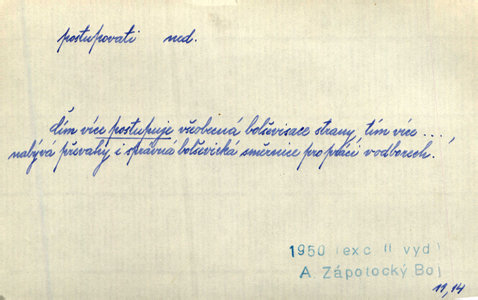 postupovati ned.
čím více postupuje všeobecná bolševisace strany, tím více ....,
nabývá převahy i správná bolševická směrnice pro práci v odborech.
1950 (exc II vyd)
A Zápotocký Boj
11,14